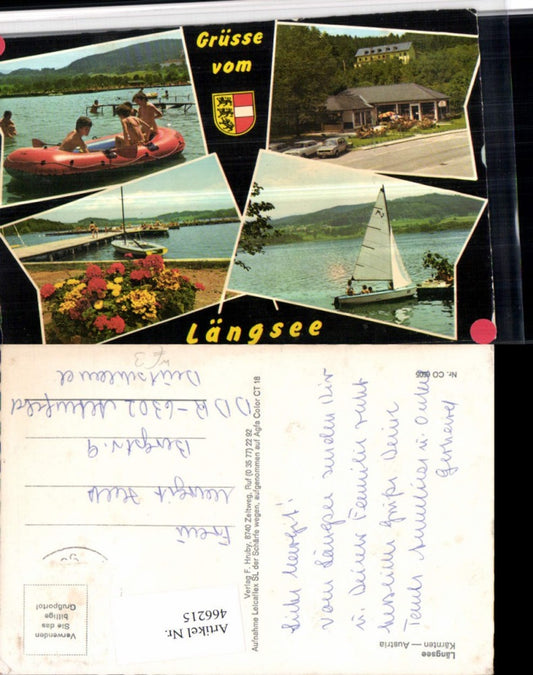 Grüsse
vom
Längsee
Längsee
Kärnten — Austria
Liebe Margit!
Vom Längsee senden Dir
u. Deiner Familie recht
herzliche Grüße Deine
Tante u. Onkel
Gerhard
Nr. CO
Verlag F. Hruby, 8740 Zeltweg, Ruf (0 35 77) 22 92
Aufnahme Leicaflex SL der Schärfe wegen, aufgenommen auf Agfa Color CT 18
Verwenden
Sie das
billige
Grußporto!
Artikel Nr.
466215
Frau
Margit
Burgstr. 9
D-6302